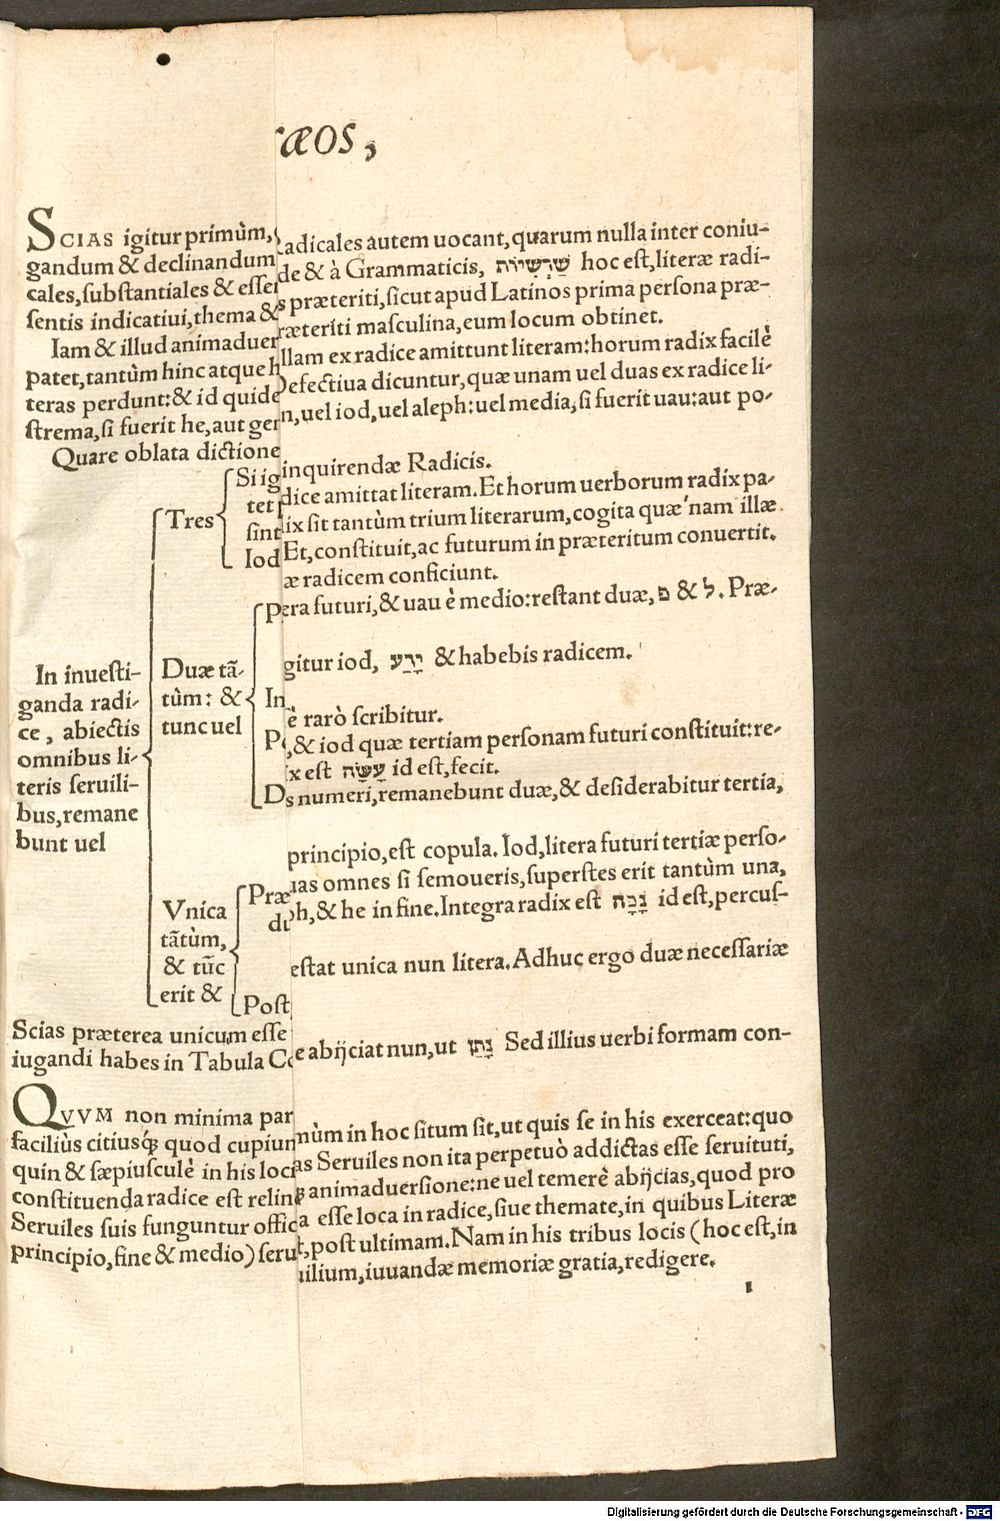 ræos,
Scias igitur primùm,
gandum & declinandum
cales, substantiales & esse
sentis indicatiui, thema &
Iam & illud animaduer
patet, tantùm hinc atque h
teras perdunt: & id quide
strema, si fuerit he, aut ger
Quare oblata dictione
In inuesti-
ganda radi-
ce, abiectis
omnibus li-
teris seruili-
bus, remane
bunt uel
Tres
Si ig
tet
sint
Iod
Duæ tã-
tùm: &
tunc uel
P
In
P
D
Vnica
tãtùm,
& tũc
erit &
Præ
du
Post
Scias præterea unicum esse
iugandi habes in Tabula Co
Qvvm non minima par
faciliùs citiusq́; quod cupiun
quin & sæpiusculè in his loci
constituenda radice est relin
Seruiles suis funguntur offic
principio, fine & medio) seru
adicales autem uocant, quarum nulla inter coniu-
de & à Grammaticis, שָׁרְשִׁיּוֹת hoc est, literæ radi-
s præteriti, sicut apud Latinos prima persona præ-
ræteriti masculina, eum locum obtinet.
llam ex radice amittunt literam: horum radix facilè
Defectiua dicuntur, quæ unam uel duas ex radice li-
n, uel iod, uel aleph: uel media, si fuerit uau: aut po-
inquirendæ Radicis.
dice amittat literam. Et horum uerborum radix pa-
ix sit tantùm trium literarum, cogita quæ'nam illæ
Et, constituit, ac futurum in præteritum conuertit.
æ radicem conficiunt.
era futuri, & uau è medio: restant duæ, מ & ל. Præ-
gitur iod, יָרַע & habebis radicem.
è rarò scribitur.
, & iod quæ tertiam personam futuri constituit: re-
ix est עָשָׂה id est, fecit.
s numeri, remanebunt duæ, & desiderabitur tertia,
principio, est copula. Iod, litera futuri tertiæ perso-
uas omnes si semoueris, superstes erit tantùm una,
ph, & he in fine. Integra radix est נָכָה id est, percus-
estat unica nun litera. Adhuc ergo duæ necessariæ
e abijciat nun, ut נָתַן Sed illius uerbi formam con-
nùm in hoc situm sit, ut quis se in his exerceat: quo
as Seruiles non ita perpetuò addictas esse seruituti,
animaduersione: ne uel temerè abijcias, quod pro
a esse loca in radice, siue themate, in quibus Literæ
t, post ultimam. Nam in his tribus locis (hoc est, in
uilium, iuuandæ memoriæ gratia, redigere.
1
Digitalisierung gefördert durch die Deutsche Forschungsgemeinschaft - DFG